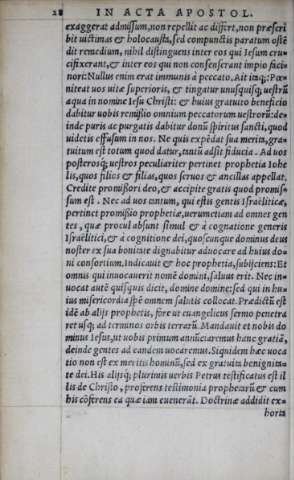 28 IN ACTA APOSTOL.
exaggerat admissum, non repellit ac differt, non præscri
bit uictimas & holocausta, sed compunctis paratum osten
dit remedium, nihil distinguens inter eos qui Iesum cru-
cifixerant, & inter eos qui non consenserant impio faci-
nori: Nullus enim erat immunis à peccato. Ait itaq;: Pœ
niteat uos uitæ superioris, & tingatur unusquisq; uestrũ
aqua in nomine Iesu Christi: & huius gratuito beneficio
dabitur uobis remissio omnium peccatorum uestrorũ: de-
inde puris ac purgatis dabitur donũ spiritus sancti, quod
uidetis effusum in nos. Ne quis expẽdat sua merita, gra-
tuitum est totum quod datur, tantũ adsit fiducia. Ad uos
posterosq; uestros peculiariter pertinet prophetia Iohe
lis, quos filios & filias, quos seruos & ancillas appellat.
Credite promissori deo, & accipite gratis quod promis-
sum est. Nec ad uos tantum, qui estis gentis Israëliticæ,
pertinet promissio prophetiæ, uerumetiam ad omnes gen
tes, quæ procul absunt simul & à cognatione generis
Israëlitici, & à cognitione dei, quoscunque dominus deus
noster ex sua bonitate dignabitur aduocare ad huius do-
ni consortium. Indicauit & hoc prophetia, subijciens: Et
omnis qui inuocauerit nomẽ domini, saluus erit. Nec in-
uocat autẽ quisquis dicit, domine domine: sed qui in hu-
ius misericordia spẽ omnem salutis collocat. Prædictũ est
idẽ ab alijs prophetis, fore ut euangelicus sermo penetra
ret usq; ad terminos orbis terrarũ. Mandauit et nobis do
minus Iesus, ut uobis primum annũciaremus hanc gratiã,
deinde gentes ad eandem uocaremus. Siquidem hæc uoca
tio non est ex meritis hominũ, sed ex gratuita benignita-
te dei. His alijsq; plurimis uerbis Petrus testificatus est il
lis de Christo, proferens testimonia prophetarũ & cum
his cõferens ea quæ iam euenerãt. Doctrinæ addidit ex-
horta